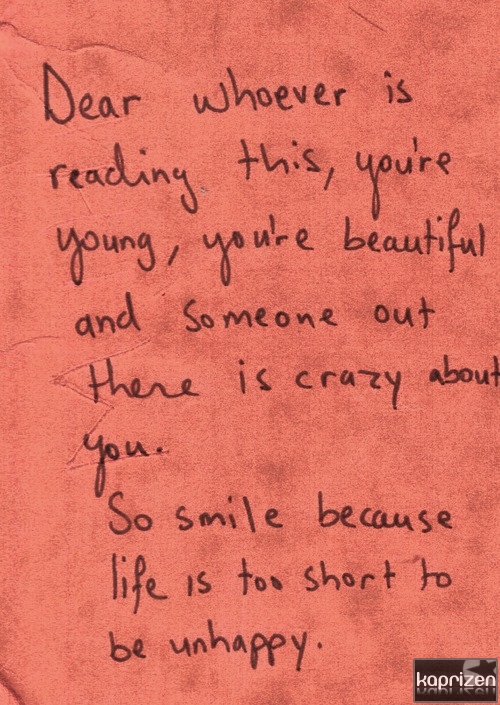 Dear whoever is
reading this, you're
young, you're beautiful
and someone out
there is crazy about
you.
So smile because
life is too short to
be unhappy.
kaprizen